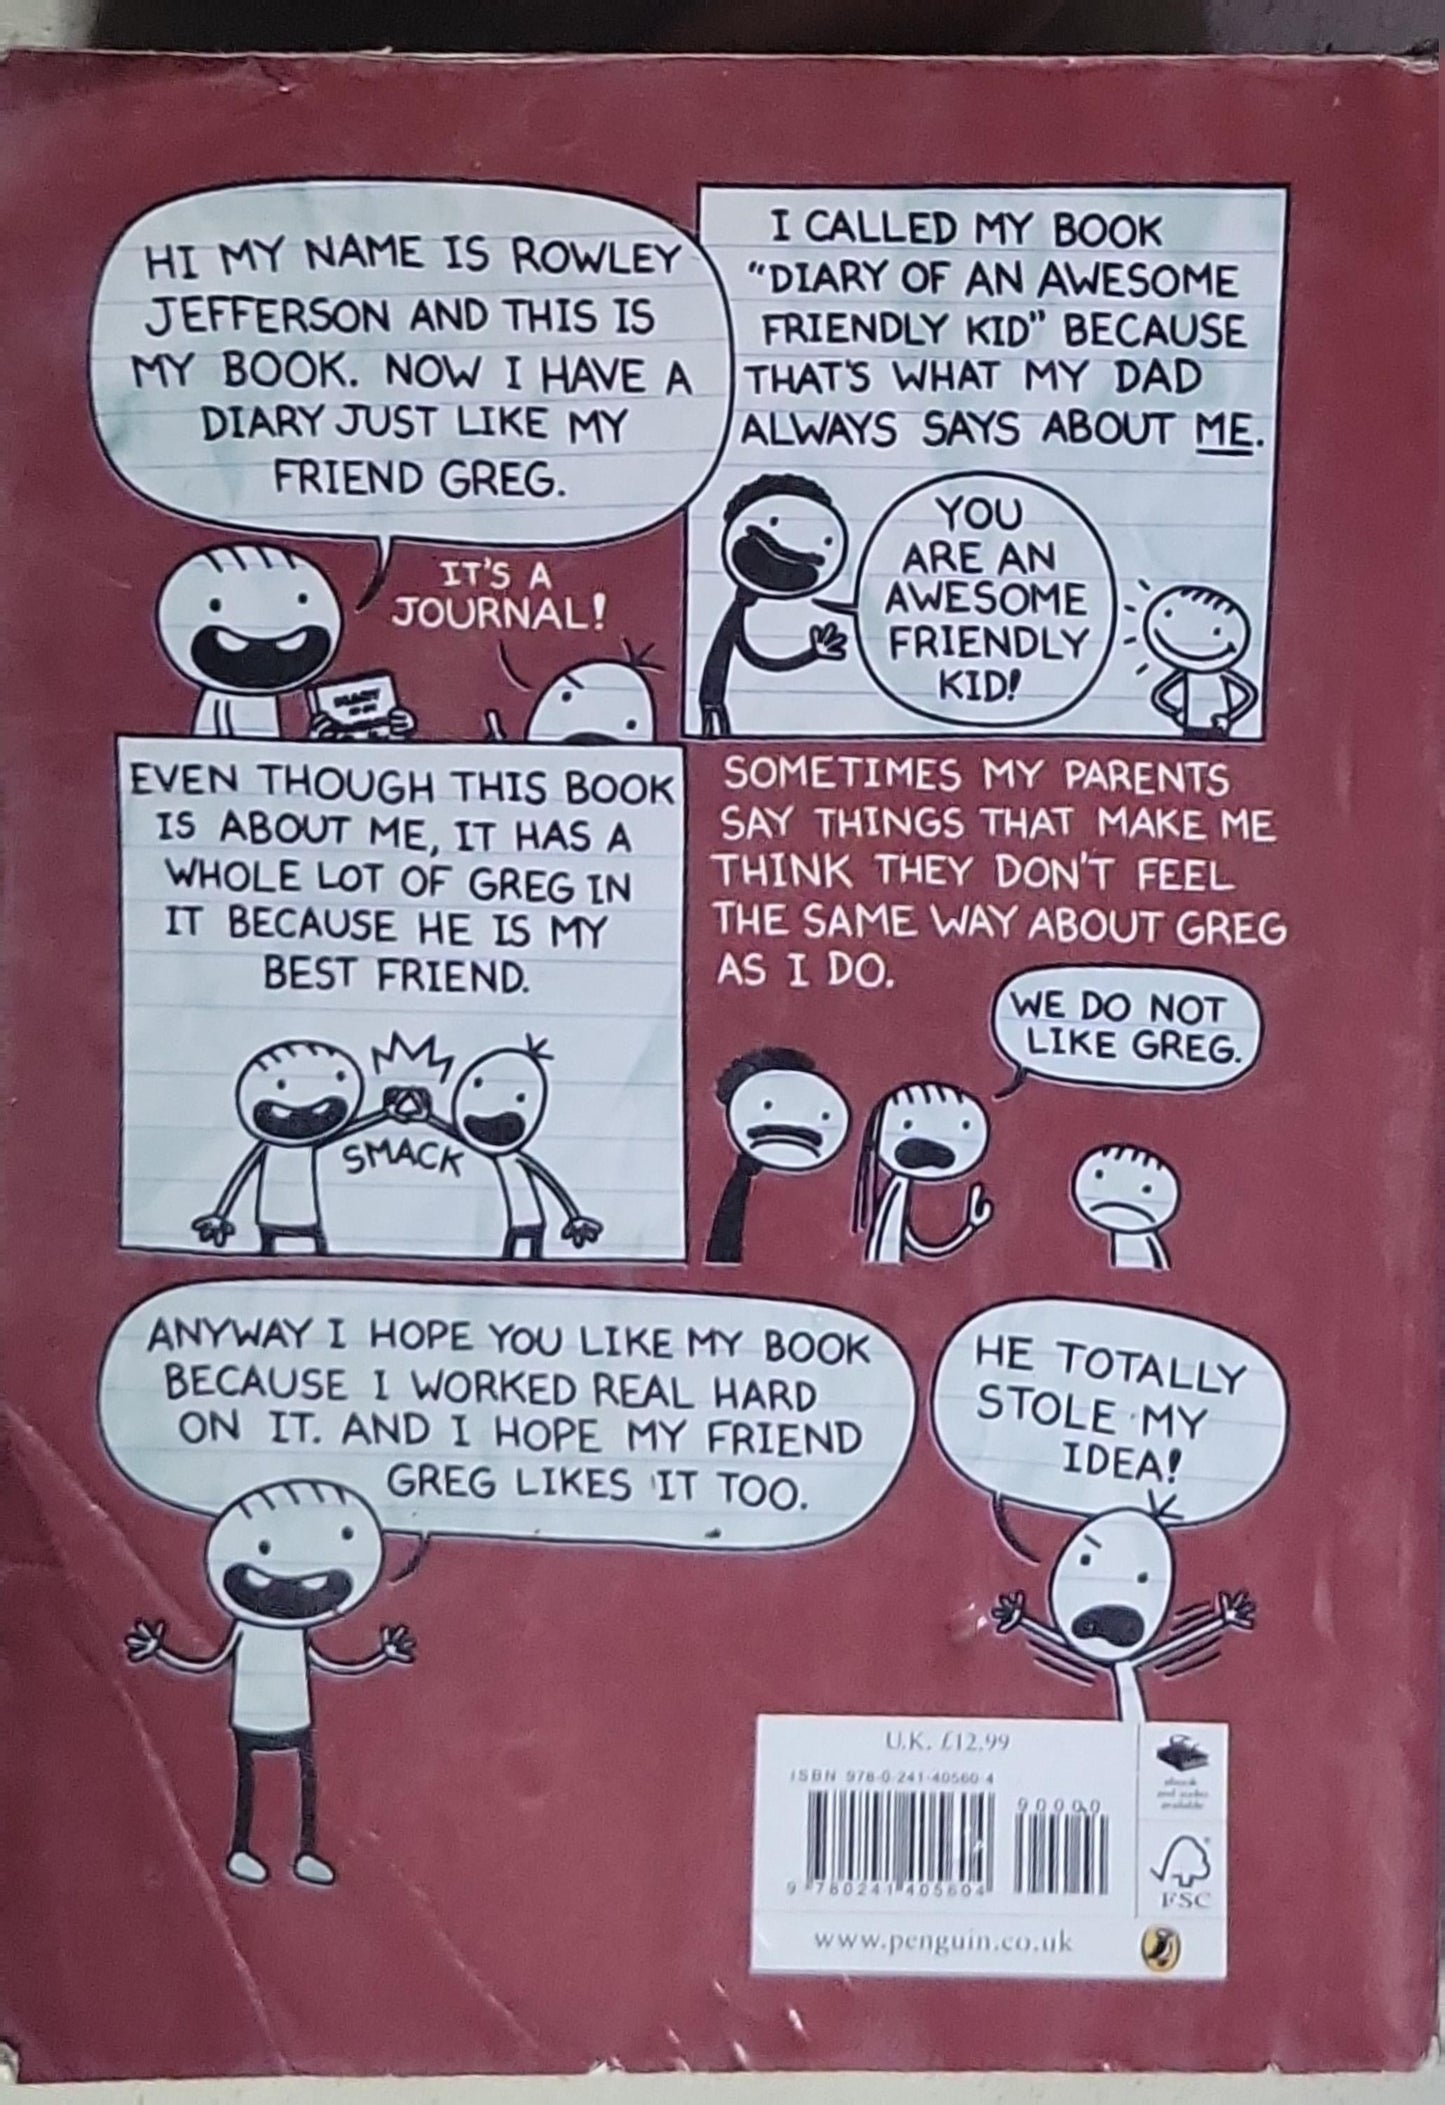 HI MY NAME IS ROWLEY
JEFFERSON AND THIS IS
MY BOOK. NOW I HAVE A
DIARY JUST LIKE MY
FRIEND GREG.
IT'S A
JOURNAL!
I CALLED MY BOOK
"DIARY OF AN AWESOME
FRIENDLY KID" BECAUSE
THAT'S WHAT MY DAD
ALWAYS SAYS ABOUT ME.
YOU
ARE AN
AWESOME
FRIENDLY
KID!
EVEN THOUGH THIS BOOK
IS ABOUT ME, IT HAS A
WHOLE LOT OF GREG IN
IT BECAUSE HE IS MY
BEST FRIEND.
SMACK
SOMETIMES MY PARENTS
SAY THINGS THAT MAKE ME
THINK THEY DON'T FEEL
THE SAME WAY ABOUT GREG
AS I DO.
WE DO NOT
LIKE GREG.
ANYWAY I HOPE YOU LIKE MY BOOK
BECAUSE I WORKED REAL HARD
ON IT. AND I HOPE MY FRIEND
GREG LIKES IT TOO.
HE TOTALLY
STOLE MY
IDEA!
U.K. £12.99
ISBN 978-0-241-40560-4
90000
9 780241 405604
ebook
and audio
available
FSC
www.penguin.co.uk